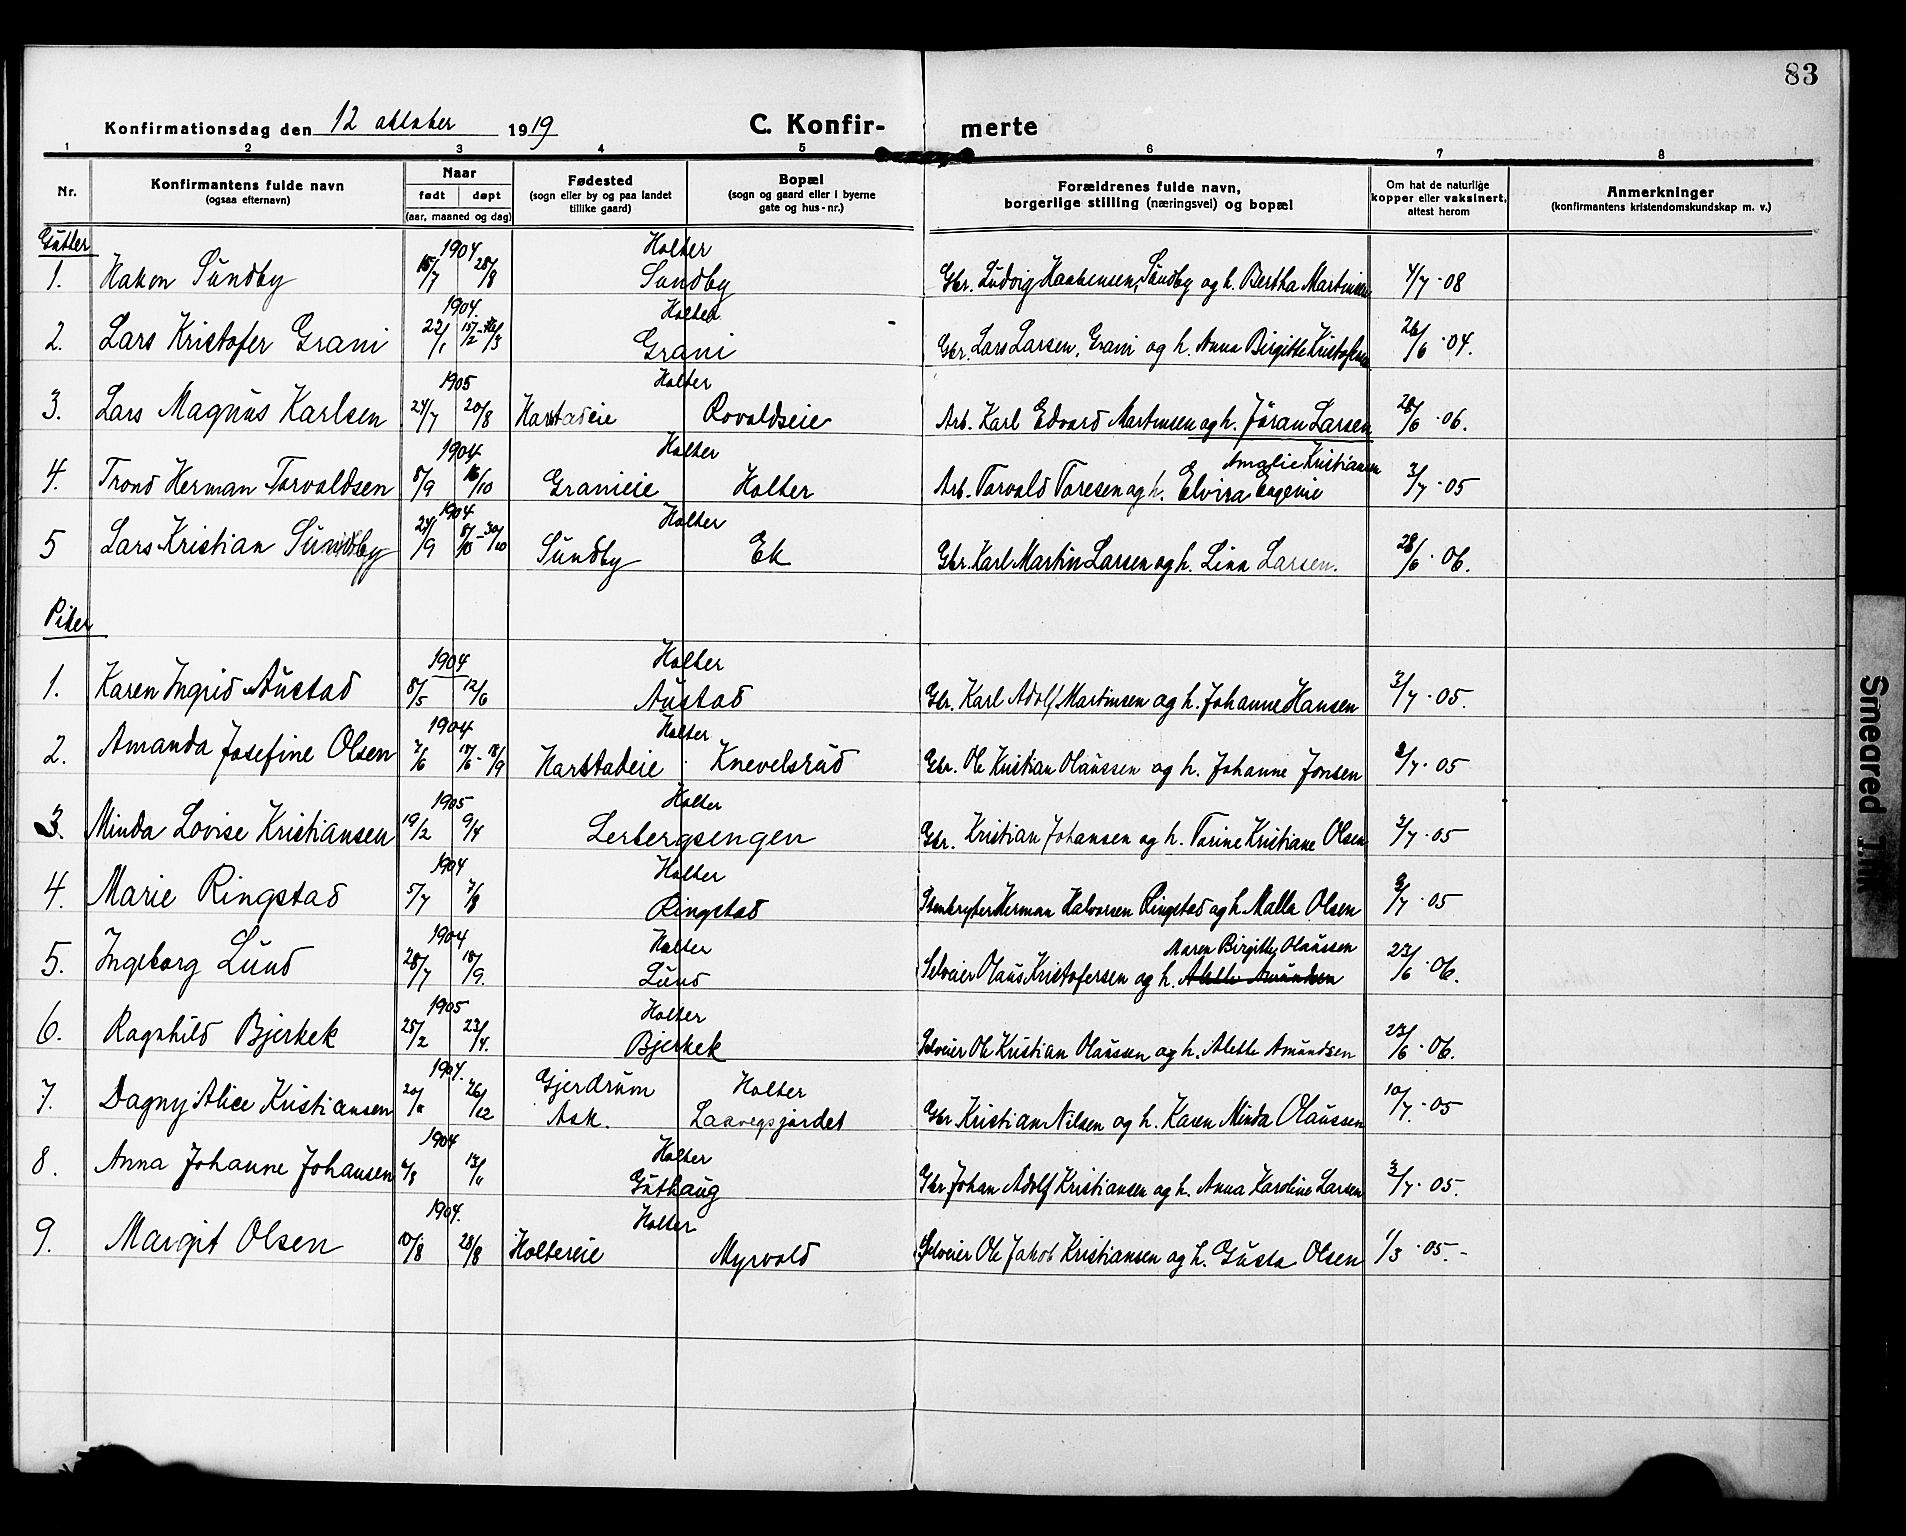 83
Konfirmationsdag den 12 oktober 1919
C. Konfir- merte
1 2 3 4 5 6 7 8
Nr.
Konfirmantens fulde navn
(ogsaa efternavn)
Naar
født døpt
(aar, maaned og dag)
Fødested
(sogn eller by og paa landet
tillike gaard)
Bopæl
(sogn og gaard eller i byerne
gate og hus-nr.)
Forældrenes fulde navn,
borgerlige stilling (næringsvei) og bopæl
Om hat de naturlige
kopper eller vaksinert,
attest herom
Anmerkninger
(konfirmantens kristendomskundskap m. v.)
Gutter
1904 Holter
1. Hakon Sundby 15/7 28/8 Sundby Gbr. Ludvig Haakensen, Sundby og h. Bertha Martinsen 4/7 - 08
1904. Holter
2. Lars Kristofer Grani 22/1 15/2 - 1/3 Grani Gbr. Lars Larsen, Grani og h. Anna Birgitte Kristofersen 26/6 - 04.
1905 Holter
3. Lars Magnus Karlsen 24/7 20/8 Harstadeie Rovoldseie Arb. Karl Edvard Martinsen og h. Jøran Larsen 28/6 - 06.
1904 Holter Amalie Kristiansen
4. Trond Herman Torvaldsen 8/9 16/10 Granieie Holter Arb. Torvald Toresen og h. Elvira Eugenie 3/7 - 05
1904 Holter
5 Lars Kristian Sundby 24/9 8/10 - 30/10 Sundby Ek Gbr. Karl Martin Larsen og h. Lina Larsen. 28/6 - 06.
Piker
1904 Holter
1. Karen Ingrid Austad 8/5 12/6 Austad Gbr. Karl Adolf Martinsen og h. Johanne Hansen 3/7 - 05.
1904 Holter
2. Amanda Josefine Olsen 7/6 17/6 - 18/9 Harstadeie Knevelsrud Gbr. Ole Kristian Olaussen og h. Johanne Jonsen 3/7 - 05
1905 Holter
3. Minda Lovise Kristiansen 19/2 9/4 Lerbergsengen Gbr. Kristian Johansen og h. Torine Kristiane Olsen 3/7 - 05
1904 Holter
4. Marie Ringstad 5/7 7/8 Ringstad Stenbryter Herman Halvorsen Ringstad og h. Malla Olsen 3/7 - 05
1904 Holter Maren Birgitte Olaussen
5. Ingeborg Lund 28/7 18/9. Lund Selveier Olaus Kristofersen og h. Alette Amundsen 23/6 - 06.
1905 Holter
6. Ragnhild Bjerkek 25/2 23/4. Bjerkek Selveier Ole Kristian Olaussen og h. Alette Amundsen 23/6 - 06.
1904. Gjerdrum Holter
7. Dagny Alice Kristiansen 20/11 26/12 Ask. Laavegsjordet Gbr Kristian Nilsen og h. Karen Minda Olaussen 10/7 - 05
1904 Holter
8. Anna Johanne Johansen 13/11 Guthaug Gbr Johan Adolf Kristiansen og h. Anna Karoline Larsen 3/7 - 05.
1904. Holter
9. Margit Olsen 10/8 28/8 Holtereie Myrvold Selveier Ole Jakob Kristiansen og h. Gusta Olsen 1/3 - 05. -
Smeared Ink